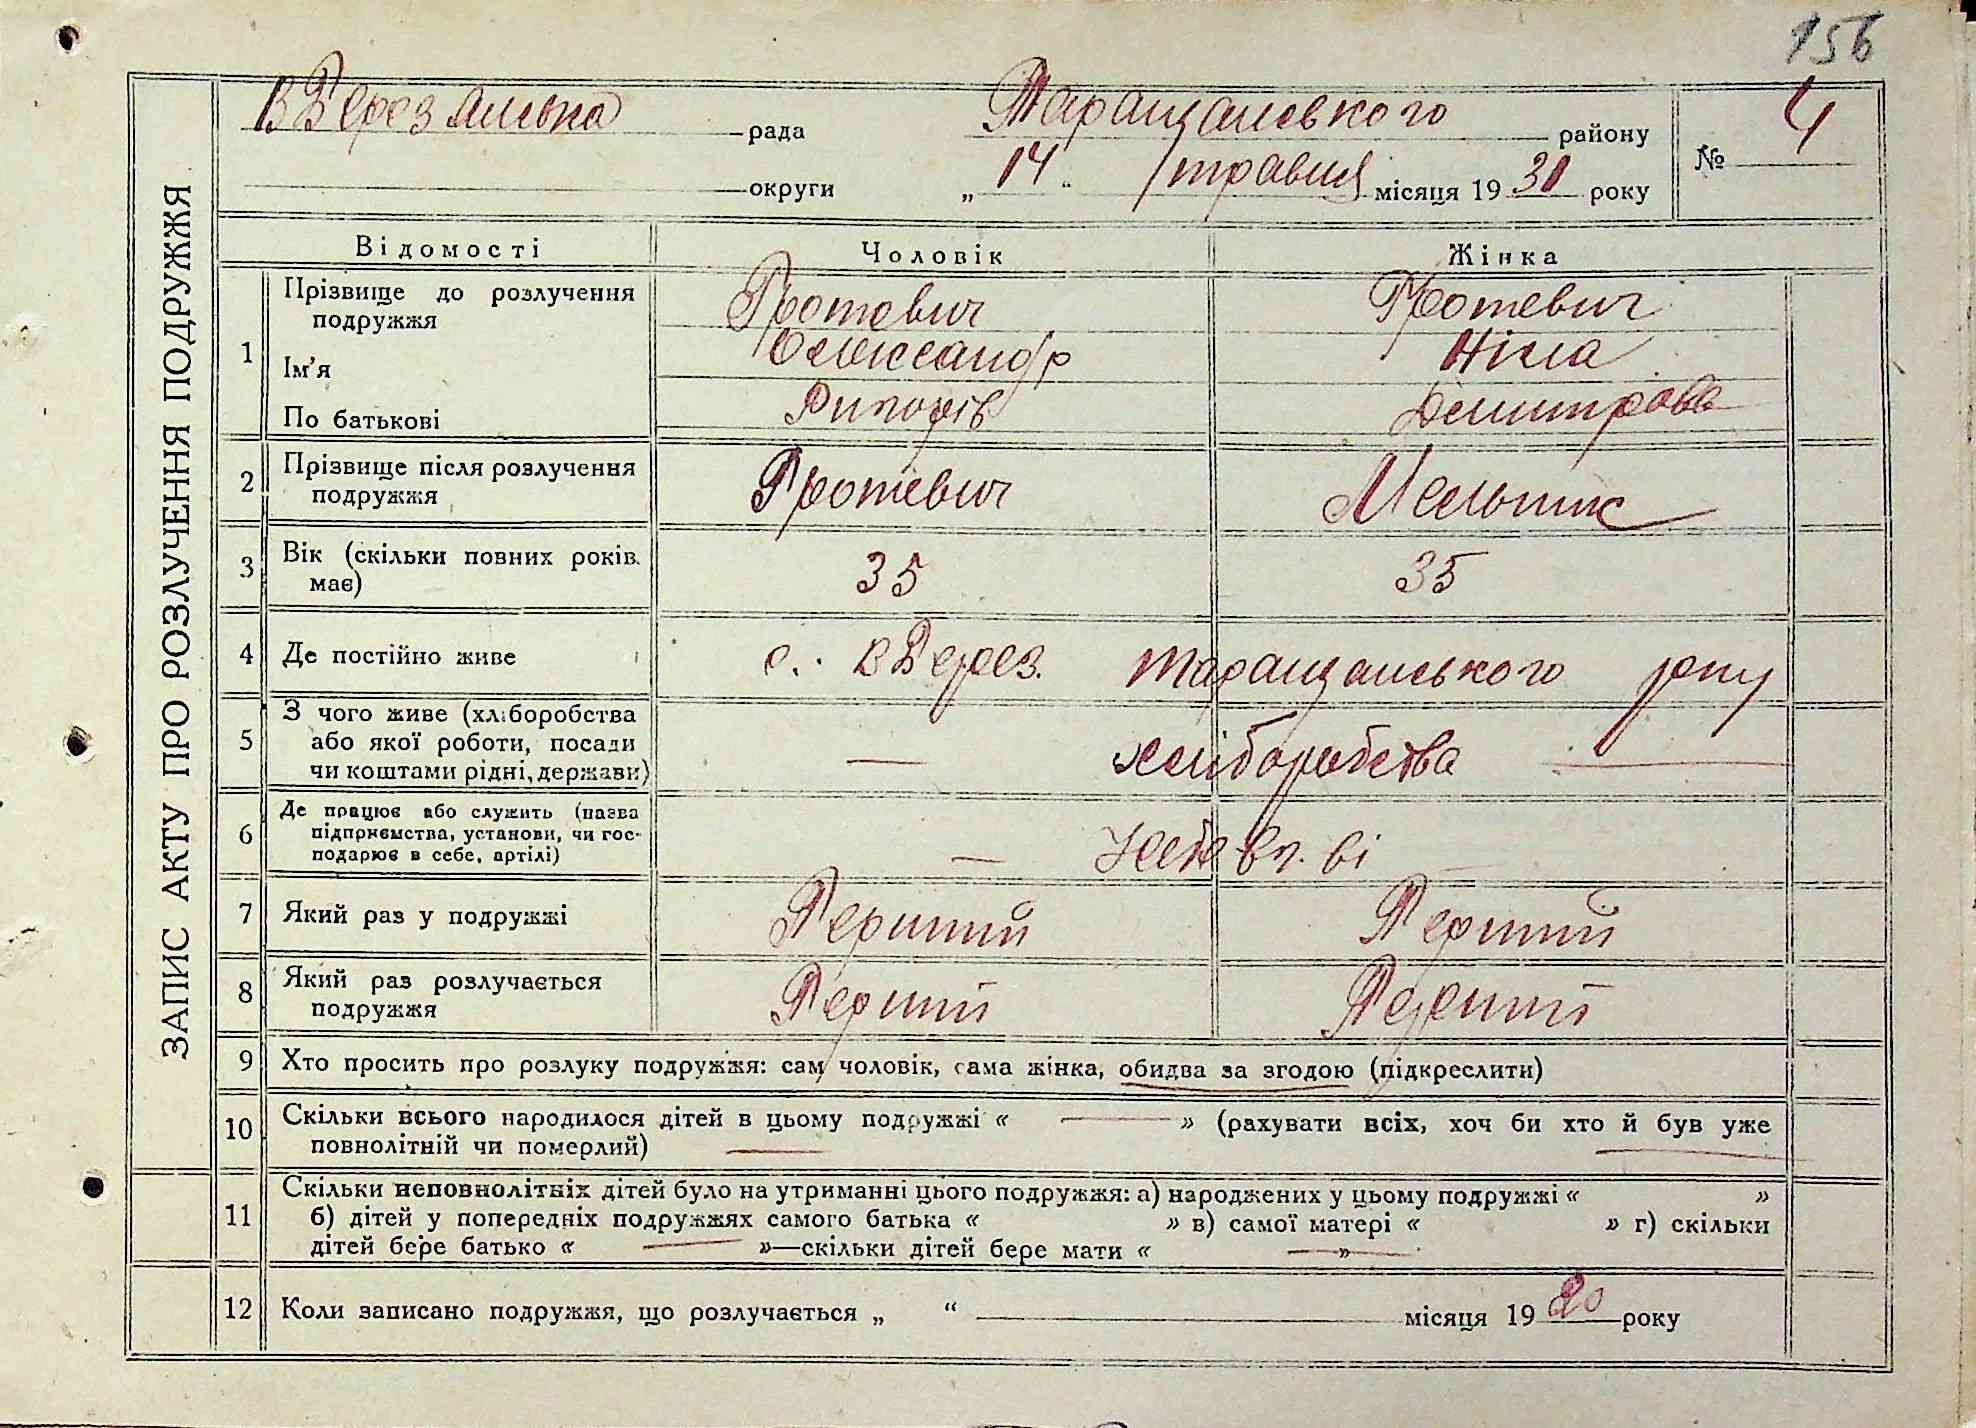 156
ЗАПИС АКТУ ПРО РОЗЛУЧЕННЯ ПОДРУЖЖЯ
В Березянська рада Таращанського району № 4
округи „14“ травня місяця 1930 року
Відомості Чоловік Жінка
1 Прізвище до розлучення подружжя Гротевич Гротевич
Ім'я Олександр Ніна
По батькові Дмитрова
2 Прізвище після розлучення подружжя Гротевич Мельник
3 Вік (скільки повних років має) 35 35
4 Де постійно живе с. В Берез. Таращанського р-ну
5 З чого живе (хліборобства або якої роботи, посади чи коштами рідні, держави) — хліборобства —
6 Де працює або служить (назва підприємства, установи, чи господарює в себе, артілі) —
7 Який раз у подружжі Перший Перший
8 Який раз розлучається подружжя Перший Перший
9 Хто просить про розлуку подружжя: сам чоловік, сама жінка, обидва за згодою (підкреслити)
10 Скільки всього народилося дітей в цьому подружжі « — » (рахувати всіх, хоч би хто й був уже
повнолітній чи померлий) —
11 Скільки неповнолітніх дітей було на утриманні цього подружжя: а) народжених у цьому подружжі « »
б) дітей у попередніх подружжях самого батька « » в) самої матері « » г) скільки
дітей бере батько « — »—скільки дітей бере мати « — »
12 Коли записано подружжя, що розлучається „ “ місяця 1920 року